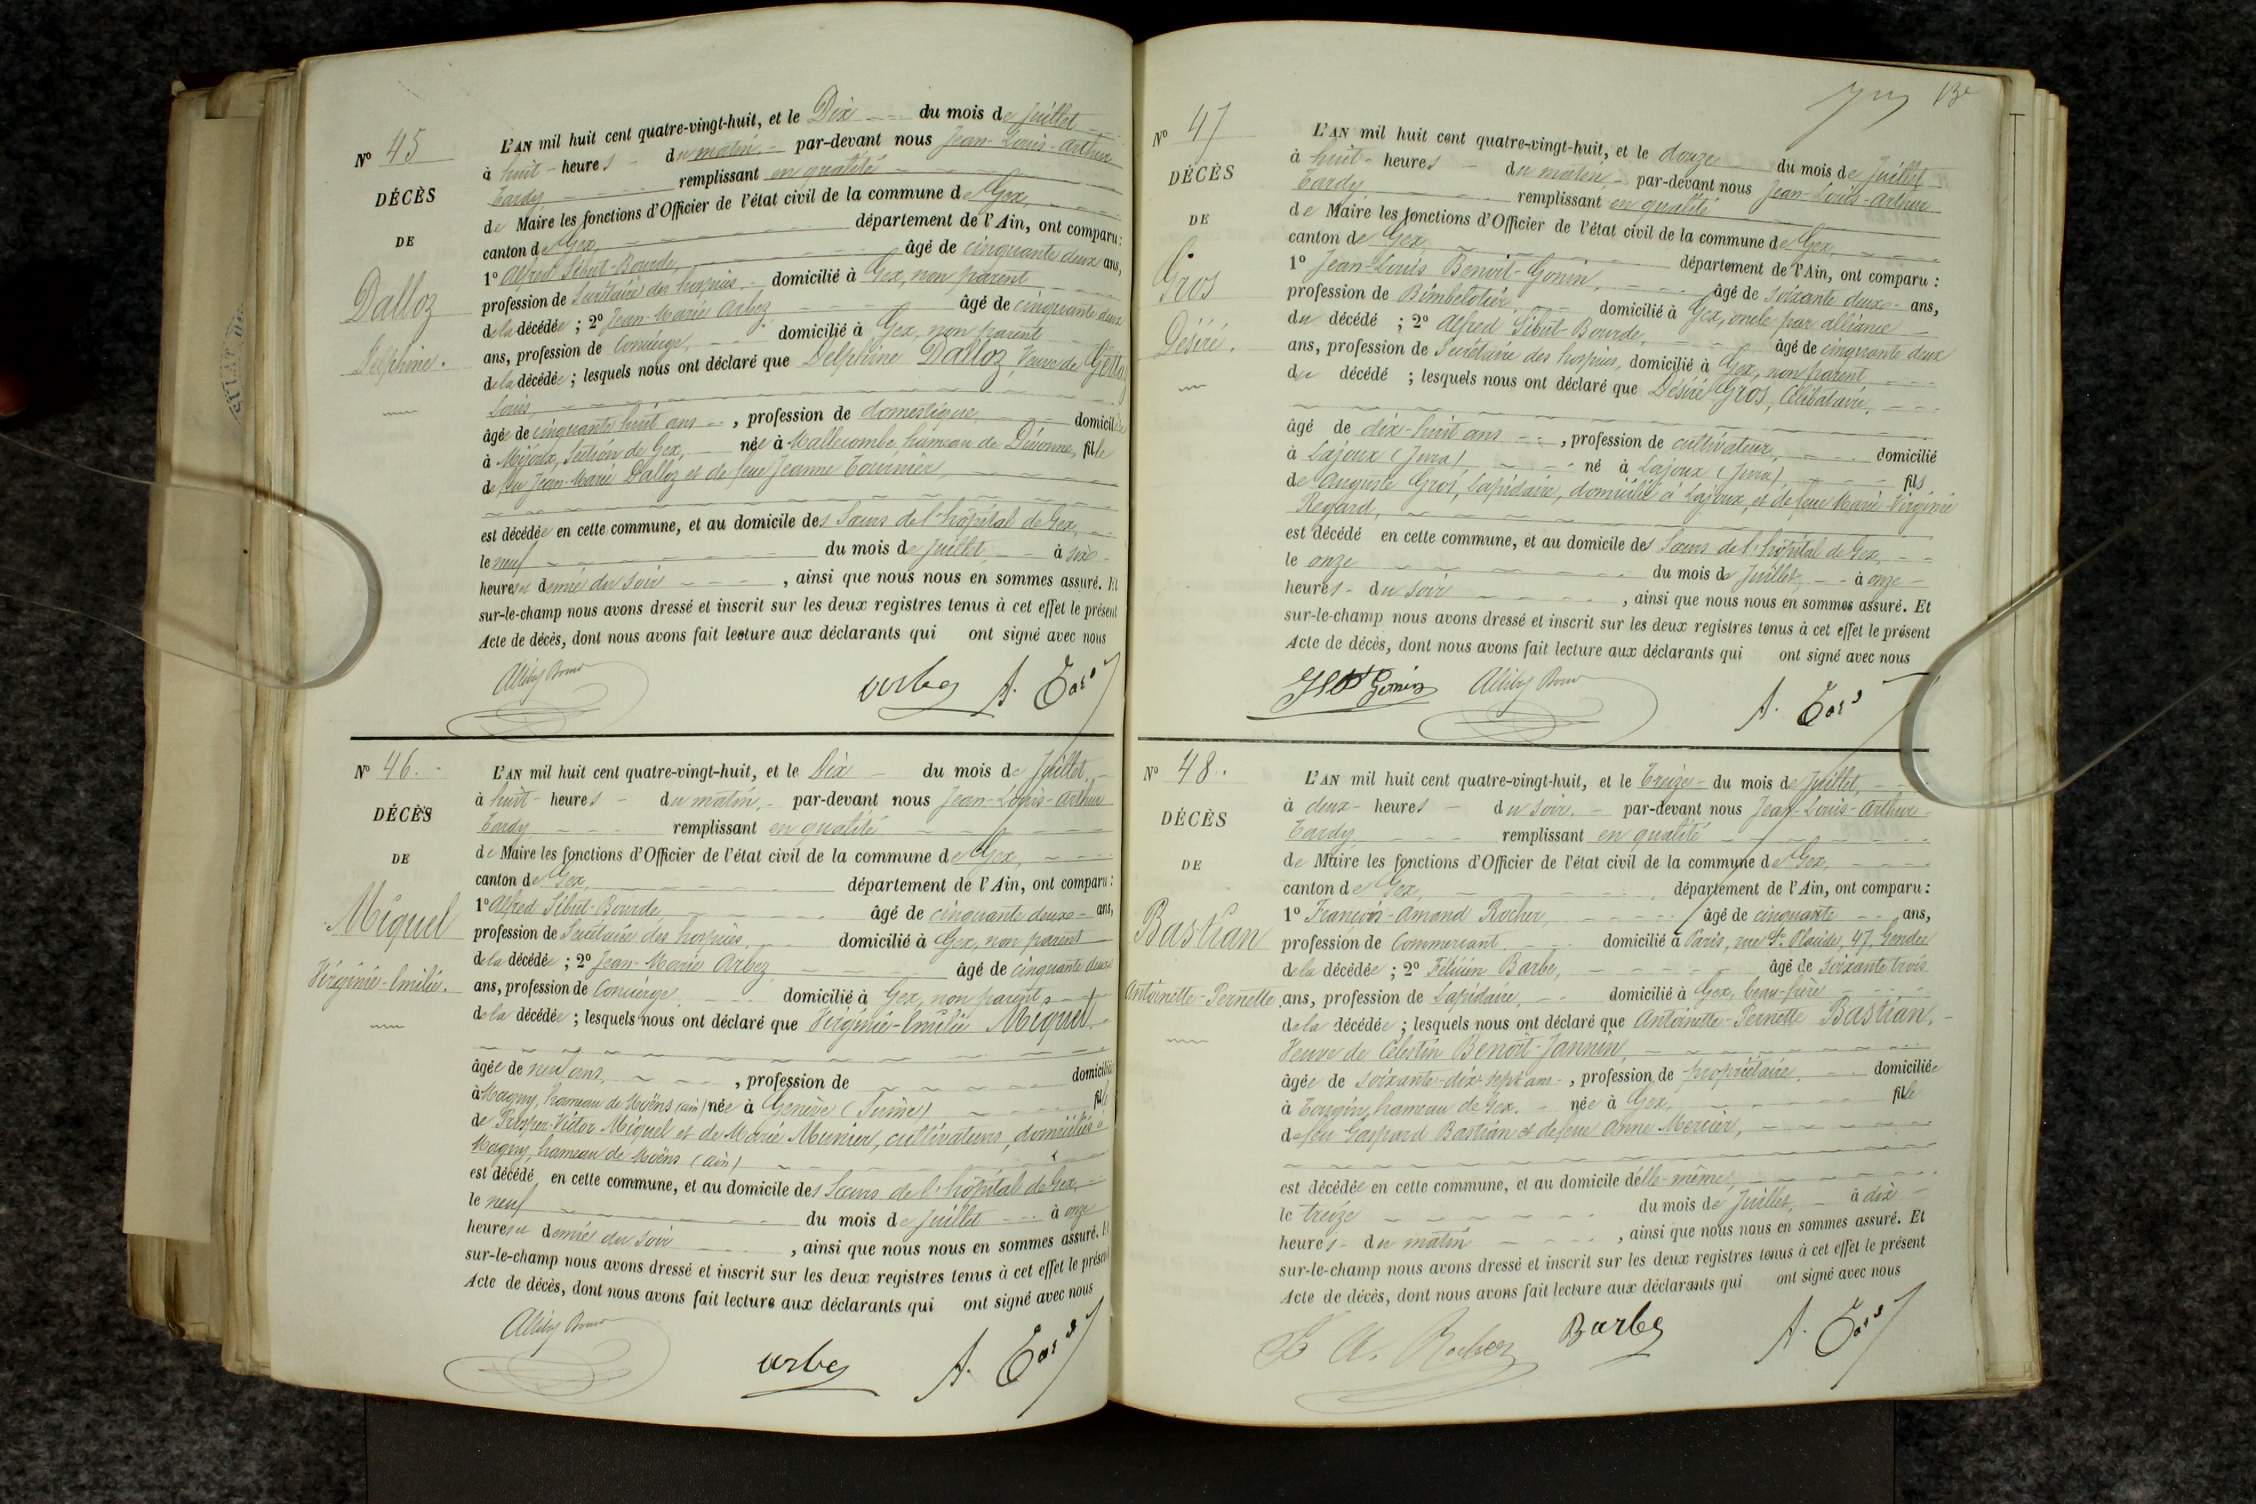 N° 45
DÉCÈS
DE
Dalloz
Delphine.
L'AN mil huit cent quatre-vingt-huit, et le Dix du mois de Juillet
à huit heures du matin, par-devant nous Jean-Louis-Arthur
Tardy remplissant en qualité
de Maire les fonctions d'Officier de l'état civil de la commune de Gex,
canton de Gex, département de l'Ain, ont comparu :
1° Alfred Sibut-Bourde, âgé de cinquante deux ans,
profession de Secrétaire des hospices domicilié à Gex, non parent
de la décédée ; 2° Jean-Marie Arbez âgé de cinquante deux
ans, profession de Concierge, domicilié à Gex, non parent
de la décédée ; lesquels nous ont déclaré que Delphine Dalloz, Veuve de
Louis,
âgée de cinquante huit ans , profession de domestique domiciliée
à Mijoux, Section de Gex, née à hameau de Divonne, fille
de feu Jean-Marie Dalloz et de feue Jeanne Tournier,
est décédée en cette commune, et au domicile des Sœurs de l'hôpital de Gex,
le neuf du mois de Juillet à six
heures et demie du soir , ainsi que nous nous en sommes assuré. Et
sur-le-champ nous avons dressé et inscrit sur les deux registres tenus à cet effet le présent
Acte de décès, dont nous avons fait lecture aux déclarants qui ont signé avec nous
arbez A. Tardy
N° 46.
DÉCÈS
DE
Miquel
Virginie-Emilie.
L'AN mil huit cent quatre-vingt-huit, et le Dix du mois de Juillet,
à huit heures du matin, par-devant nous Jean-Louis-Arthur
Tardy remplissant en qualité
de Maire les fonctions d'Officier de l'état civil de la commune de Gex,
canton de Gex, département de l'Ain, ont comparu :
1° Alfred Sibut-Bourde, âgé de cinquante deux ans,
profession de Secrétaire des hospices, domicilié à Gex, non parent
de la décédée ; 2° Jean-Marie Arbez âgé de cinquante deux
ans, profession de Concierge domicilié à Gex, non parent
de la décédée ; lesquels nous ont déclaré que Virginie-Emilie Miquel
âgée de neuf ans, , profession de domiciliée
à Magny, hameau de Moëns (ain) née à Genève (Suisse) fille
de Prosper-Victor Miquel et de Marie Munier, cultivateurs, domiciliés à
Magny, hameau de Moëns (ain)
est décédé en cette commune, et au domicile des Sœurs de l'hôpital de Gex,
le neuf du mois de Juillet à onze
heures et demie du soir , ainsi que nous nous en sommes assuré. Et
sur-le-champ nous avons dressé et inscrit sur les deux registres tenus à cet effet le présent
Acte de décès, dont nous avons fait lecture aux déclarants qui ont signé avec nous
arbez A. Tardy
N° 47
DÉCÈS
DE
Gros
Désiré.
L'AN mil huit cent quatre-vingt-huit, et le douze du mois de Juillet
à huit heures du matin, par-devant nous Jean-Louis-Arthur
Tardy remplissant en qualité
de Maire les fonctions d'Officier de l'état civil de la commune de Gex,
canton de Gex, département de l'Ain, ont comparu :
1° Jean-Louis Benoit-Gonin, âgé de soixante deux ans,
profession de Bimbelotier, domicilié à Gex, oncle par alliance
du décédé ; 2° Alfred Sibut-Bourde, âgé de cinquante deux
ans, profession de Secrétaire des hospices, domicilié à Gex, non parent
du décédé ; lesquels nous ont déclaré que Désiré Gros, Célibataire,
âgé de dix-huit ans , profession de cultivateur, domicilié
à Lajoux (Jura) né à Lajoux (Jura) fils
de Auguste Gros, Lapidaire, domicilié à Lajoux, et de feue Marie-Virginie
Regard,
est décédé en cette commune, et au domicile des Sœurs de l'hôpital de Gex,
le onze du mois de Juillet, à onze
heures du soir , ainsi que nous nous en sommes assuré. Et
sur-le-champ nous avons dressé et inscrit sur les deux registres tenus à cet effet le présent
Acte de décès, dont nous avons fait lecture aux déclarants qui ont signé avec nous
Gonin A. Tardy
N° 48.
DÉCÈS
DE
Bastian
Antoinette-Pernette.
L'AN mil huit cent quatre-vingt-huit, et le Treize du mois de Juillet,
à deux heures du soir, par-devant nous Jean-Louis-Arthur
Tardy remplissant en qualité
de Maire les fonctions d'Officier de l'état civil de la commune de Gex,
canton de Gex, département de l'Ain, ont comparu :
1° François-Amand Rocher, âgé de cinquante ans,
profession de Commercant domicilié à Paris, rue St. Placide, 47, Gendre
de la décédée ; 2° Félicien Barbe, âgé de soixante trois
ans, profession de Lapidaire, domicilié à Gex, beau-frère
de la décédée ; lesquels nous ont déclaré que Antoinette-Pernette Bastian,
Veuve de Célestin Benoît-Jannin
âgée de soixante-dix-sept ans , profession de propriétaire, domiciliée
à Tougin, hameau de Gex. née à Gex, fille
de feu Gaspard Bastian et de feue Anne Mercier,
est décédée en cette commune, et au domicile d'elle-même,
le treize du mois de Juillet, à dix
heures du matin , ainsi que nous nous en sommes assuré. Et
sur-le-champ nous avons dressé et inscrit sur les deux registres tenus à cet effet le présent
Acte de décès, dont nous avons fait lecture aux déclarants qui ont signé avec nous
A. Rocher Barbe A. Tardy